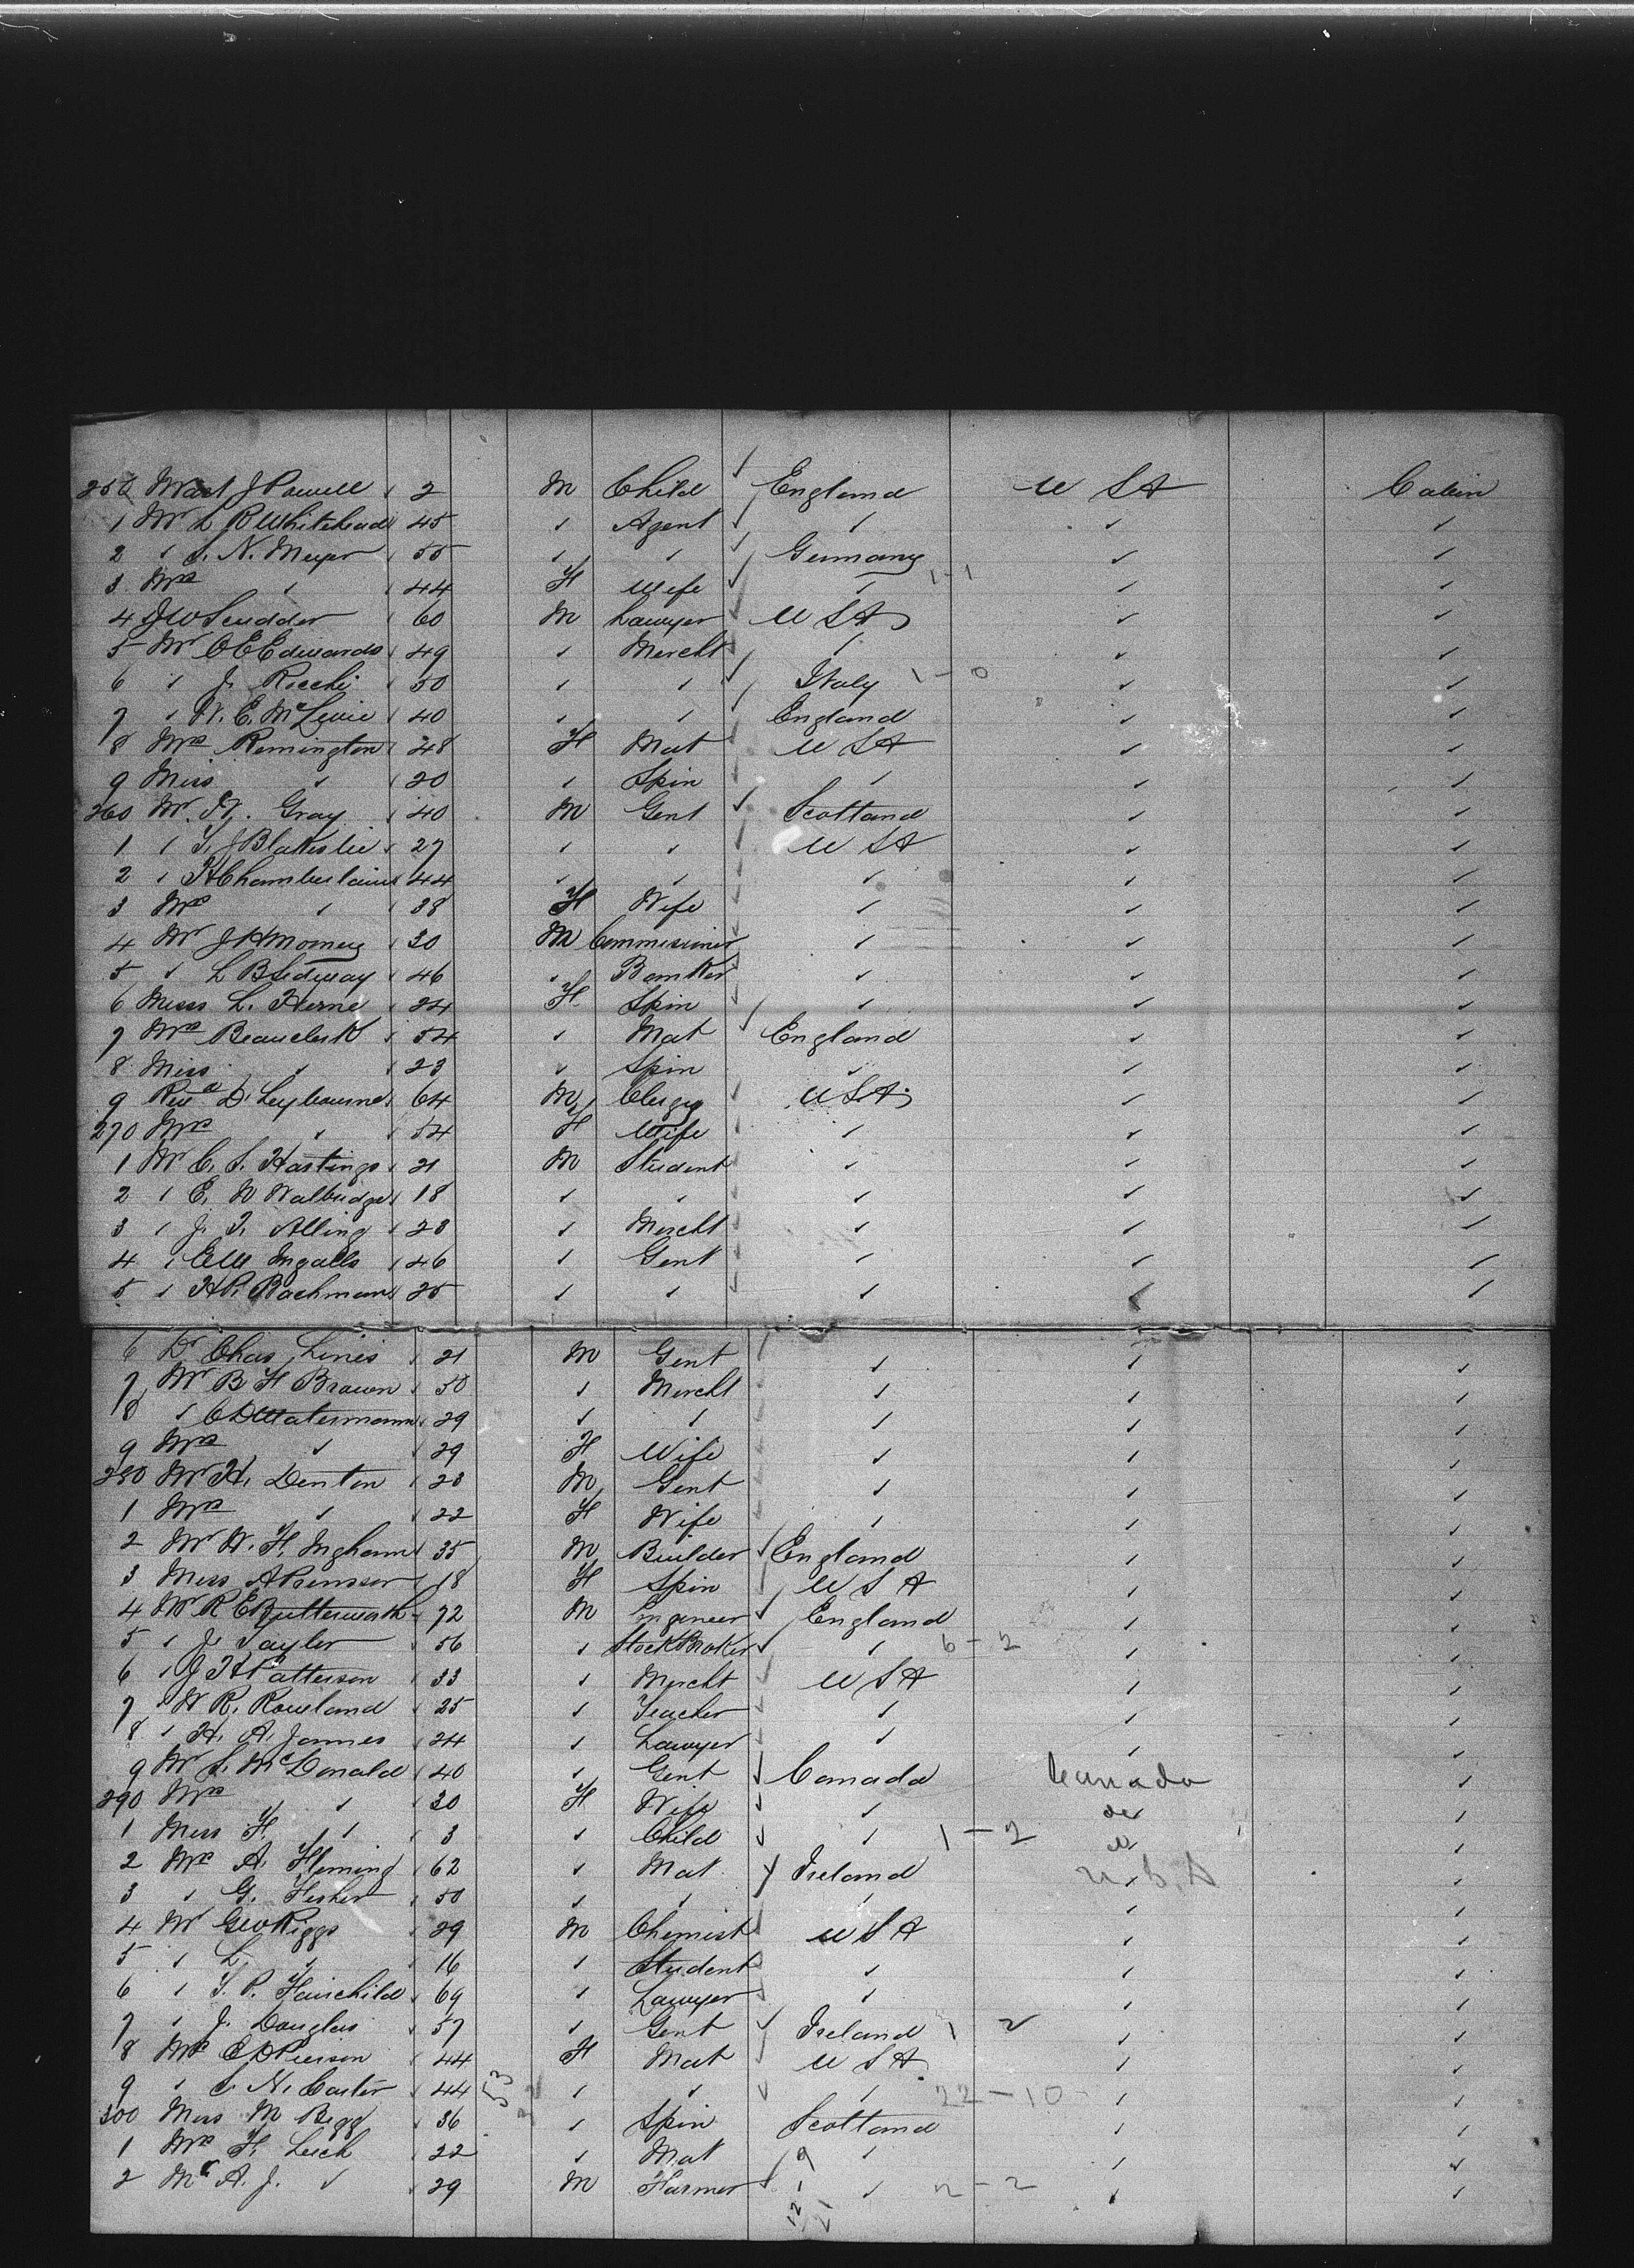 250 Mast J Powell 2 M Child England U S A Cabin
1 Mr L R Whitehead 45 " Agent " " "
2 " S. N. Meyer 55 " " Germany " "
3 Mrs " 44 F Wife " 1-1 " "
4 J W Scudder 60 M Lawyer U S A " "
5 Mr O E Edwards 49 " Mercht " " "
6 " J. Rocchi 50 " " Italy 1-0 " "
7 " W. E. McLewie 40 " " England " "
8 Mrs Remington 48 F Mat U S A " "
9 Miss " 20 " Spin " " "
260 Mr. W. Gray 40 M Gent Scotland " "
1 " T. J Blakeslie 27 " " U S A " "
2 " H Chamberlain 44 " " " " "
3 Mrs " 38 F Wife " " "
4 Mr J H Money 30 M Commissioner " " "
5 " L B Sidway 46 " Banker " " "
6 Miss L. Herne 24 F Spin " " "
7 Mrs Beauclerk 54 " Mat England " "
8 Miss " 23 " Spin " " "
9 Revd D. Leybourne 64 M Clergy U S A " "
270 Mrs " 54 F Wife " " "
1 Mr C. S. Hastings 21 M Student " " "
2 " E. W Walbridge 18 " " " " "
3 " J. T. Alling 23 " Mercht " " "
4 " E W Ingalls 46 " Gent " " "
5 " H P. Bachman 25 " " " " "
6 Dr Chas Lines 21 M Gent " " "
7 Mr B F Brown 50 " Mercht " " "
8 " C D Watermann 29 " " " " "
9 Mrs " 29 F Wife " " "
280 Mr H. Denton 23 M Gent " " "
1 Mrs " 22 F Wife " " "
2 Mr W. F. Ingham 35 M Builder England " "
3 Miss A 18 F Spin U S A " "
4 Mr R E Butterworth 72 M Engineer England " "
5 " J. Tayler 56 " Stock Broker " 6-2 " "
6 " J H Patterson 33 " Mercht U S A " "
7 " W R. Rowland 25 " Teacher " " "
8 " H. A. James 24 " Lawyer " " "
9 Mr S. McDonald 40 " Gent Canada Canada "
290 Mrs " " 30 F Wife " do "
1 Miss F. " 3 " Child " 1-2 " "
2 Mrs A. Fleming 62 " Mat Ireland U.S.A "
3 " G. Fisher 50 " " " " "
4 Mr Geo Riggs 29 M Chemist U S A " "
5 " L. " 16 " Student " " "
6 " T. P. Fairchild 69 " Lawyer " " "
7 " J. Douglas 57 " Gent Ireland 1 2 " "
8 Mrs C D Pierson 44 F Mat U S A " "
9 " S. N. Carter 44 53 " " " 22-10 " "
300 Miss M Begg 36 " Spin Scotland " "
1 Mrs F. Leich 22 " Mat " " "
2 Mr A. J. " 29 M Farmer " 2-2 " "